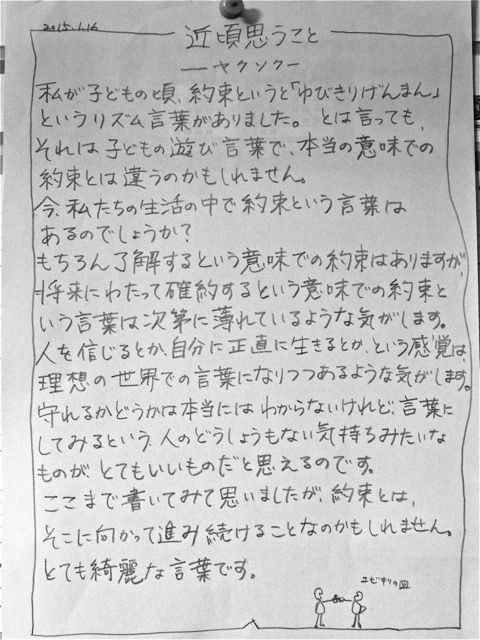 2015.1.16
近頃思うこと
ーヤクソクー
私が子どもの頃、約束というと「ゆびきりげんまん」
というリズム言葉がありました。とは言っても、
それは子どもの遊び言葉で、本当の意味での
約束とは違うのかもしれません。
今、私たちの生活の中で約束という言葉は
あるのでしょうか?
もちろん了解するという意味での約束はありますが、
将来にわたって確約するという意味での約束と
いう言葉は次第に薄れているような気がします。
人を信じるとか、自分に正直に生きるとか、という感覚は、
理想の世界での言葉になりつつあるような気がします。
守れるかどうかは本当にはわからないけれど、言葉に
してみるという、人のどうしようもない気持ちみたいな
ものが、とてもいいものだと思えるのです。
ここまで書いてみて思いましたが、約束とは、
そこに向かって進み続けることなのかもしれません。
とても綺麗な言葉です。
ユビキリの図